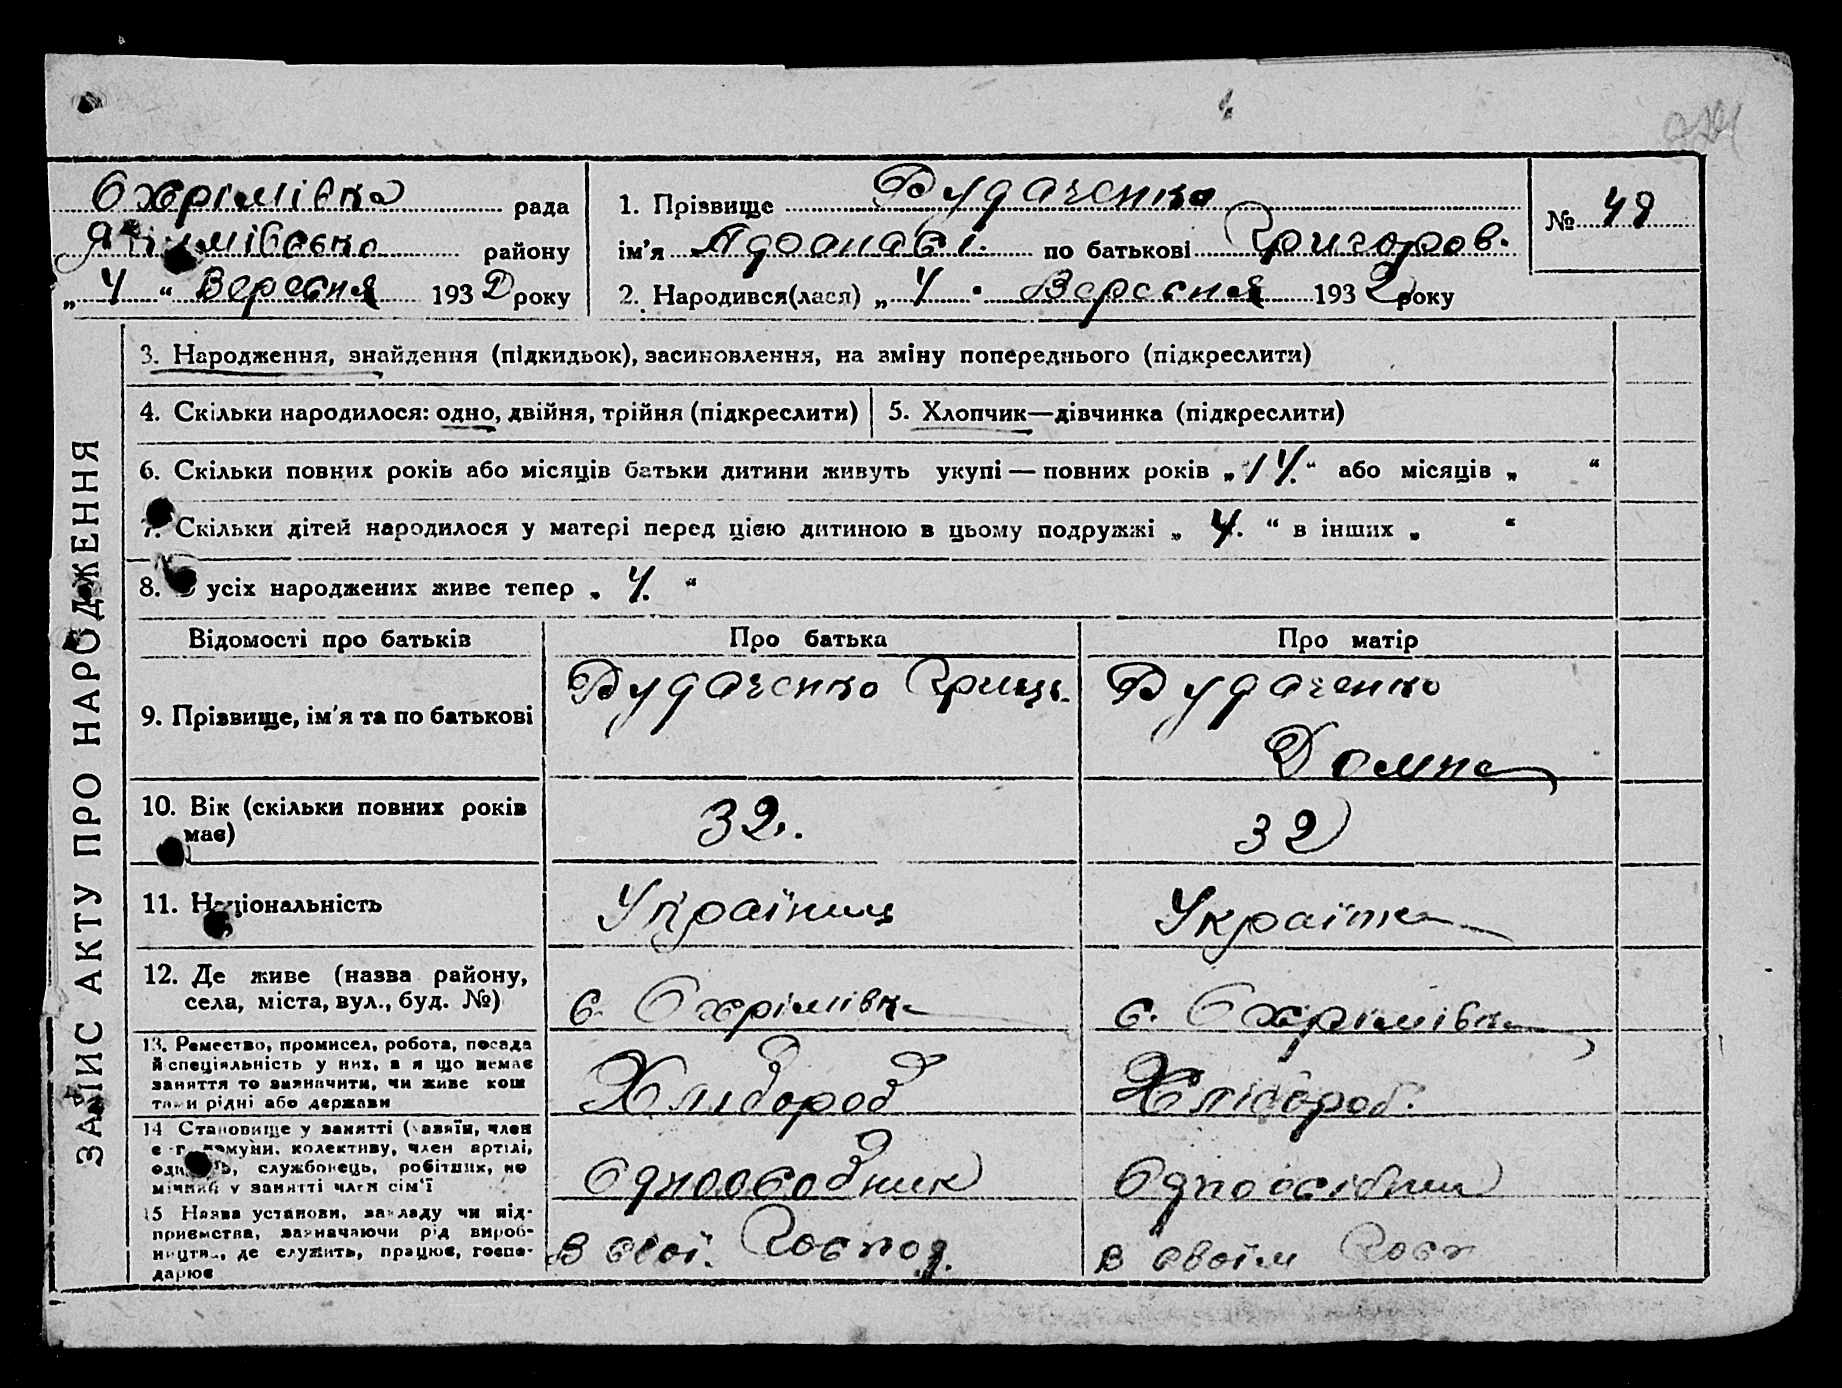 Охрімівка рада
Якимівсько району
„ 4 “ Вересня 1932 року
1. Прізвище Будаченко
ім'я по батькові Григоров.
2. Народився(лася) „ 4 " Вересня 1932 року
№ 48
3. Народження, знайдення (підкидьок), засиновлення, на зміну попереднього (підкреслити)
4. Скільки народилося: одно, двійня, трійня (підкреслити)
5. Хлопчик—дівчинка (підкреслити)
6. Скільки повних років або місяців батьки дитини живуть укупі — повних років „ 14. “ або місяців „ “
7. Скільки дітей народилося у матері перед цією дитиною в цьому подружжі „ 4. “ в інших „ “
8. З усіх народжених живе тепер „ 4. “
ЗАПИС АКТУ ПРО НАРОДЖЕННЯ
Відомості про батьків
Про батька
Про матір
9. Прізвище, ім'я та по батькові
Будаченко Гриць.
Будаченко
Домна
10. Вік (скільки повних років
має)
32.
32
11. Національність
Українць
Українка
12. Де живе (назва району,
села, міста, вул., буд. №)
с. Охрімівка
с. Охрімівка
13. Ремество, промисел, робота, посада
й спеціяльність у них, а я що немає
заняття то зазначити, чи живе кош
тами рідні або держави
Хлібороб
Хлібороб.
14 Становище у занятті (хазяїн, член
с-г. комуни, колективу, член артілі,
одинець, службовець, робітник, по
мічний у занятті член сім'ї
Одноособник
Одноосібник
15 Назва установи, закладу чи під-
приємства, зазначаючи рід вироб-
ництва, де служить, працює, госпо-
дарює
в свої. Господ.
в своїм Госп